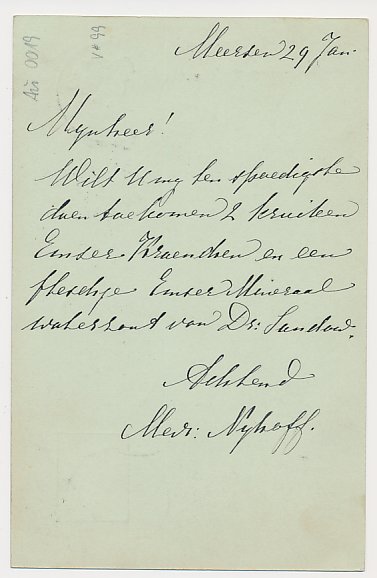 Meersen 29 Jan.
Mynheer!
Wilt U my ten spoedigste
doen toekomen 2 kruiken
Emser Kraenchen en een
fleschje Emser Mineraal
waterzout van Dr: Sandow.
Achtend
Mevr: Nyhoff.